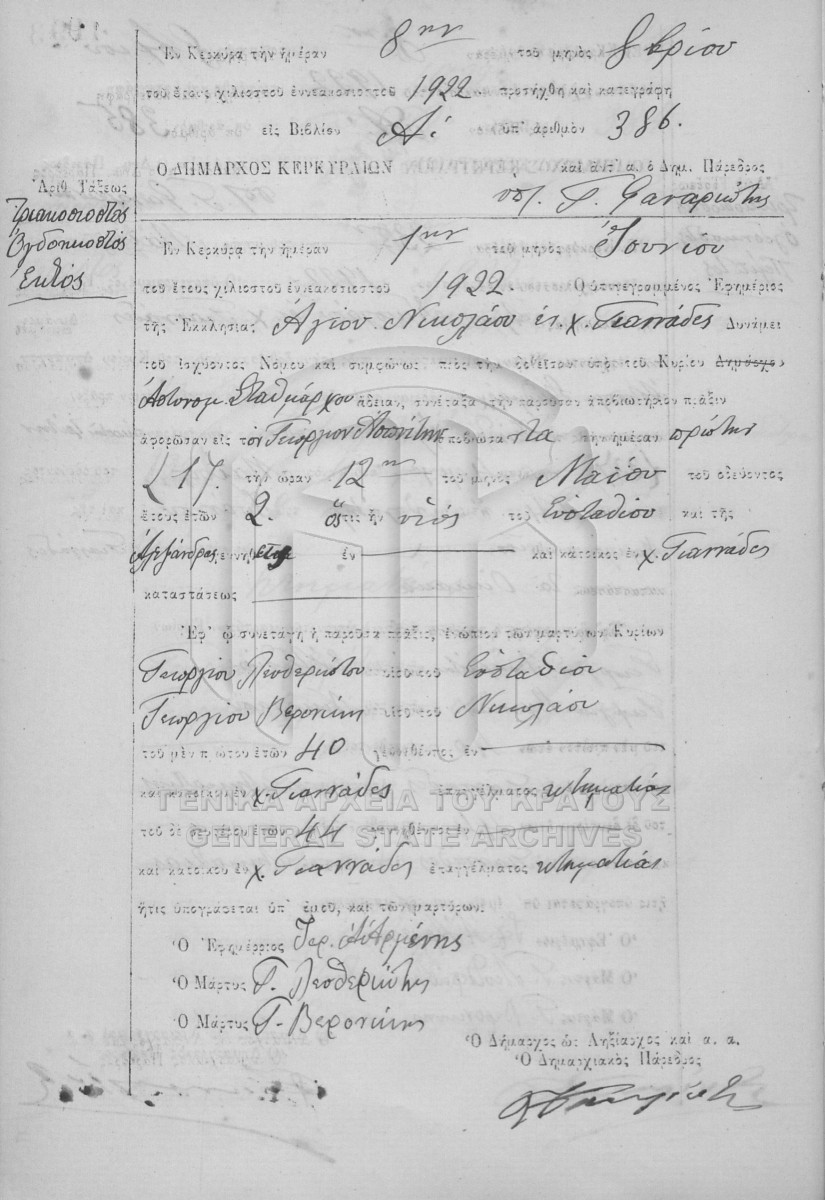 Ἐν Κερκύρᾳ τὴν ἡμέραν 8ην τοῦ μηνὸς 8βρίου
τοῦ ἔτους χιλιοστοῦ ἐννεακοσιοστοῦ 1922 προσήχθη καὶ κατεγράφη
εἰς Βιβλίον Αʹ. ὑπ' ἀριθμὸν 386.
Ὁ ΔΗΜΑΡΧΟΣ ΚΕΡΚΥΡΑΙΩΝ ἢ καὶ ἀντ' α. ὁ Δημ. Πάρεδρος
Ἀριθ. Τάξεως
ὑπ. Γ. Φαναριώτης
Τριακοσιοστὸς
Ὀγδοηκοστὸς
Ἕκτὸς
Ἐν Κερκύρᾳ τὴν ἡμέραν 1ην τοῦ μηνὸς Ἰουνίου
τοῦ ἔτους χιλιοστοῦ ἐννεακοσιοστοῦ 1922. Ὁ ὑπογεγραμμένος Ἐφημέριος
τῆς Ἐκκλησίας Ἁγίου Νικολάου ἐκ χ. Γιαννάδες Δυνάμει
τοῦ ἰσχύοντος Νόμου καὶ συμφώνως πρὸς τὴν δοθεῖσαν ὑπὸ τοῦ Κυρίου Δημάρχου
Ἀστυνομ. Σταθμάρχου ἄδειαν, συνέταξα τὴν παροῦσαν ἀποβιωτήριον πρᾶξιν
ἀφορῶσαν εἰς τὸν Γεώργιον ἀποβιώσαντα τὴν ἡμέραν πρώτην
(17. τὴν ὥραν 12ην τοῦ μηνὸς Μαΐου τοῦ ὁδεύοντος
ἔτους ἐτῶν 2. ὅστις ἦν υἱὸς τοῦ Εὐσταθίου καὶ τῆς
Ἀλεξάνδρας ἐν καὶ κάτοικος ἐν χ. Γιαννάδες
καταστάσεως
Ἐφ' ᾧ συνετάγη ἡ παροῦσα πρᾶξις, ἐνώπιον τῶν μαρτύρων Κυρίων
Γεωργίου Λευθεριώτου υἱοῦ τοῦ Εὐσταθίου
Γεωργίου Βερονίκη υἱοῦ τοῦ Νικολάου
τοῦ μὲν πρώτου ἐτῶν 40 γεννηθέντος ἐν
καὶ κατοίκου ἐν χ. Γιαννάδες ἐπαγγέλματος κτηματίας
ΓΕΝΙΚΑ ΑΡΧΕΙΑ ΤΟΥ ΚΡΑΤΟΥΣ
τοῦ δὲ δευτέρου ἐτῶν 44 γεννηθέντος ἐν
GENERAL STATE ARCHIVES
καὶ κατοίκου ἐν χ. Γιαννάδες ἐπαγγέλματος κτηματίας
ἥτις ὑπογράφεται ὑπ' ἐμοῦ, καὶ τῶν μαρτύρων.
Ὁ Ἐφημέριος Ἱερ.
Ὁ Μάρτυς Γ. Λευθεριώτης
Ὁ Μάρτυς Γ. Βερονίκης
Ὁ Δήμαρχος ὡς Ληξίαρχος καὶ α. α.
Ὁ Δημαρχιακὸς Πάρεδρος